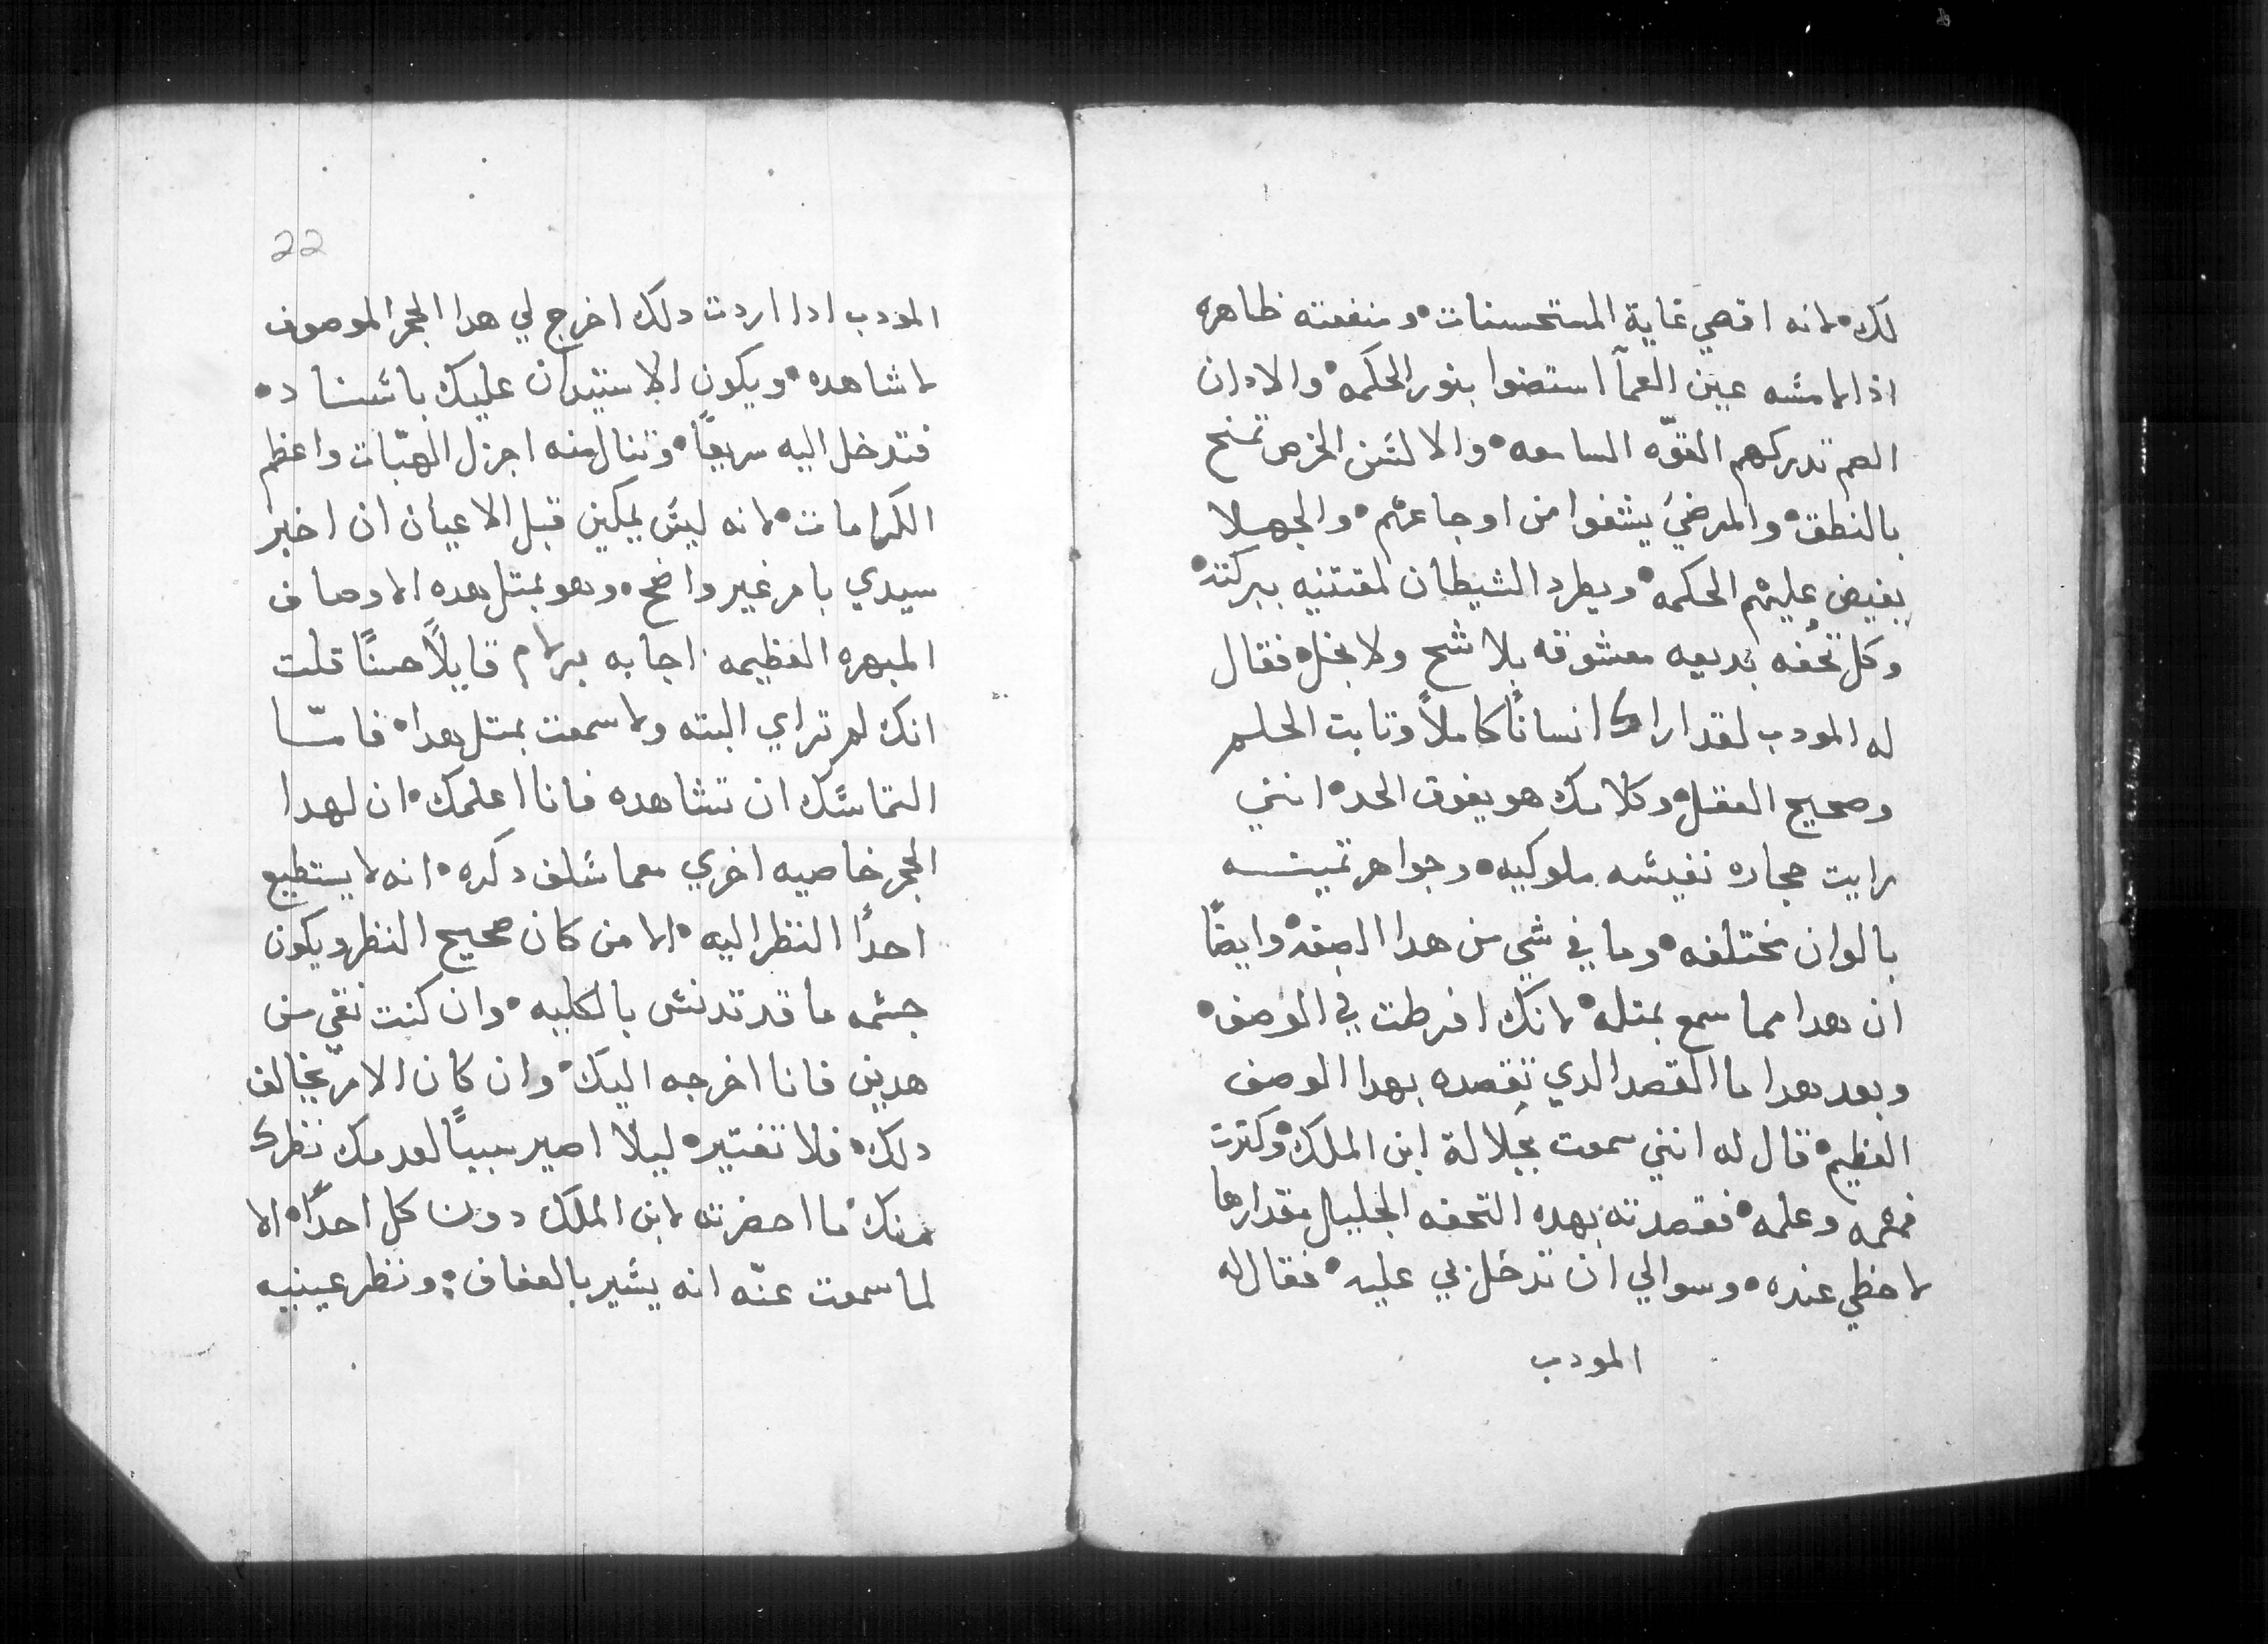 لك • لانه اقصي غاية المستحسنات • ومنفعته ظاهره
اذا لامسه عين العمآ استضوا بنور الحكمه • والادان
الصم تدركهم القوّه السامعه • والالسن الخرص تمنح
بالنطق • والمرضيَ يشفوا من اوجاعهم • والجهلا
يفيض عليهم الحكمه • ويطرد الشيطان لمقتنيه ببركته •
وكل تحُفه بديعه معشوقه بلا شح ولا بخل • فقال
له المودب لقد اراك انسانًا كاملاً وتابت الحلم
وصحيح العقل • وكلامك هو يفوق الحد • انني
رايت حجاره نفيسه ملوكيه • وجواهر تمينه
بالوان مختلفه • وما في شي من هدا الصفه • وايضًا
ان هدا مما سمع بمتله • لانك افرطت في الوصف •
وبعد هدا ما القصد الدي تقصده بهدا الوصف
العظيم • قال له انني سمعت بجلالة ابن الملك • وكترت
فهمه وعلمه • فقصدته بهده التحفه الجليل مقدارها
لاحظي عنده • وسوالي ان تدخل بي عليه • فقال له
المودب
22
المودب ادا اردت دلك اخرج لي هدا الحجر الموصوف
لاشاهده • ويكون الاستيدان عليك باسناد •
فتدخل اليه سريعًا • وتنال منه اجزل الهبّات واعظم
الكرامات • لانه ليس يمكين قبل الاعيان ان اخبر
سيدي بامر غير واضح • وهو بمتل هده الاوصاف
المبهره العظيمه • اجابه برلام قايلاً حسنًا قلت
انك لم تراي البته ولا سمعت بمتل هدا • فامّا
التماسك ان تشاهده فانا اعلمك • ان لهدا
الحجر خاصيه اخري معما سلف دكره • انه لا يستطيع
احدًا النظر اليه • الا من كان صحيح النظر ويكون
جسمه ما قد تدنس بالكليه • وان كنت نقي من
هدين فانا اخرجه اليك • وان كان الامر بخالف
دلك • فلا تفتيره • ليلا اصير سببًا لعدمك نظرك
منك ما احضرته لابن الملك دون كل احدًا • الا
لما سمعت عنّه انه يسير بالعفاف • ونظر عينيه